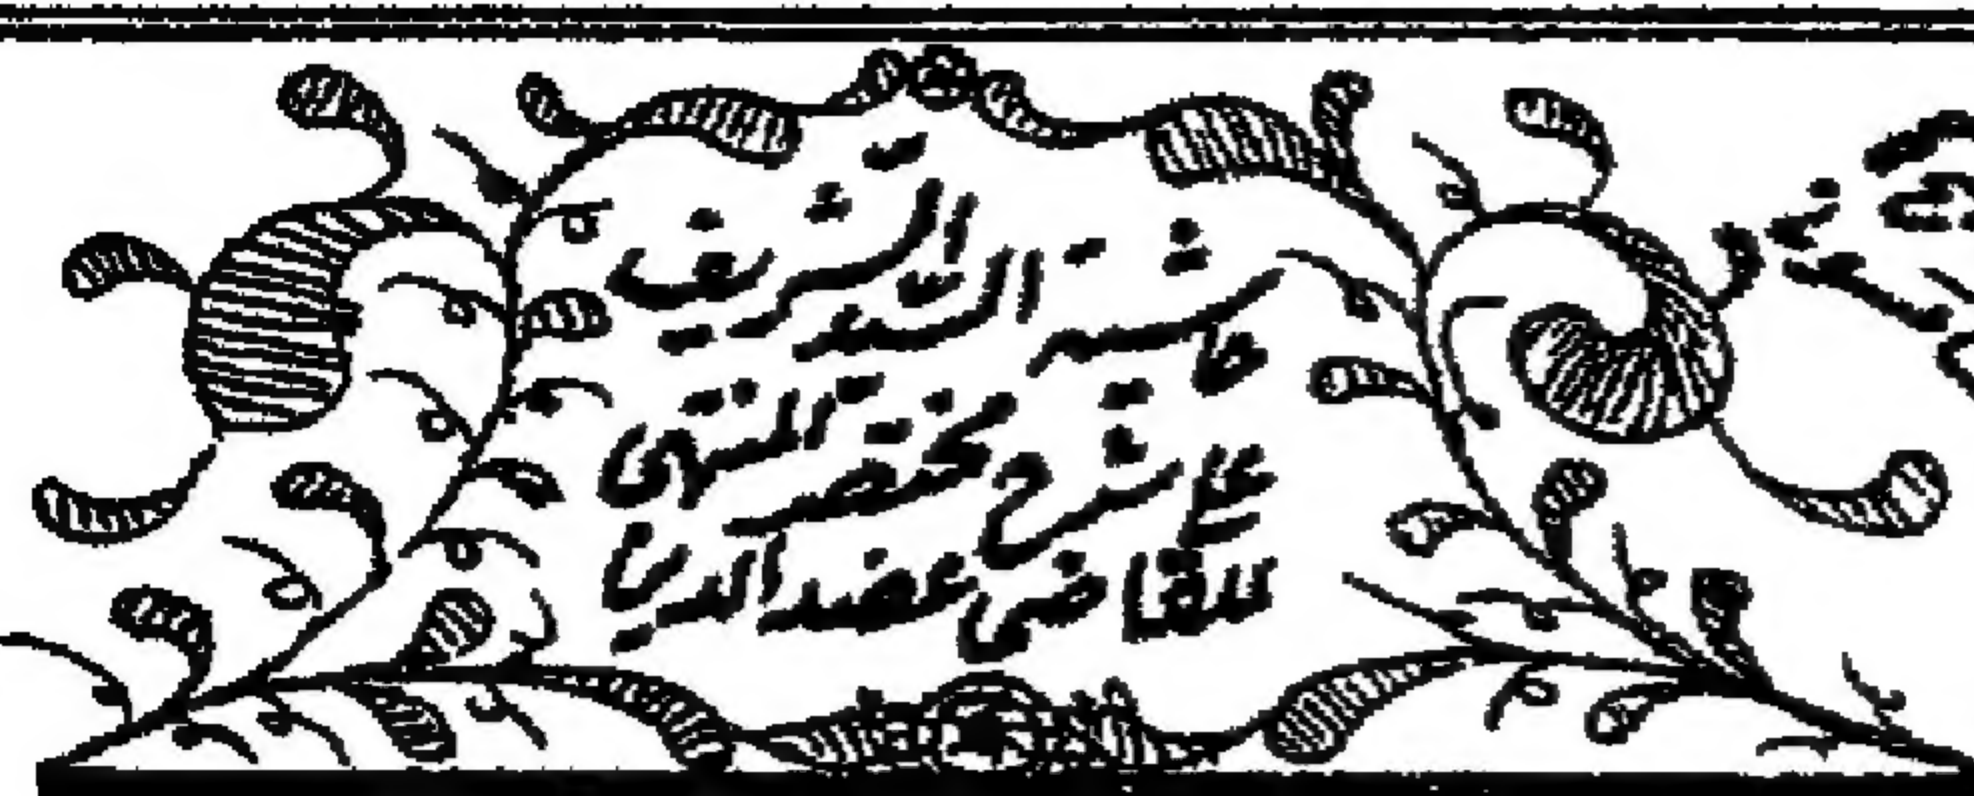 حاشية السيد الشريف
على شرح مختصر المنتهى
للقاضي عضد الدين